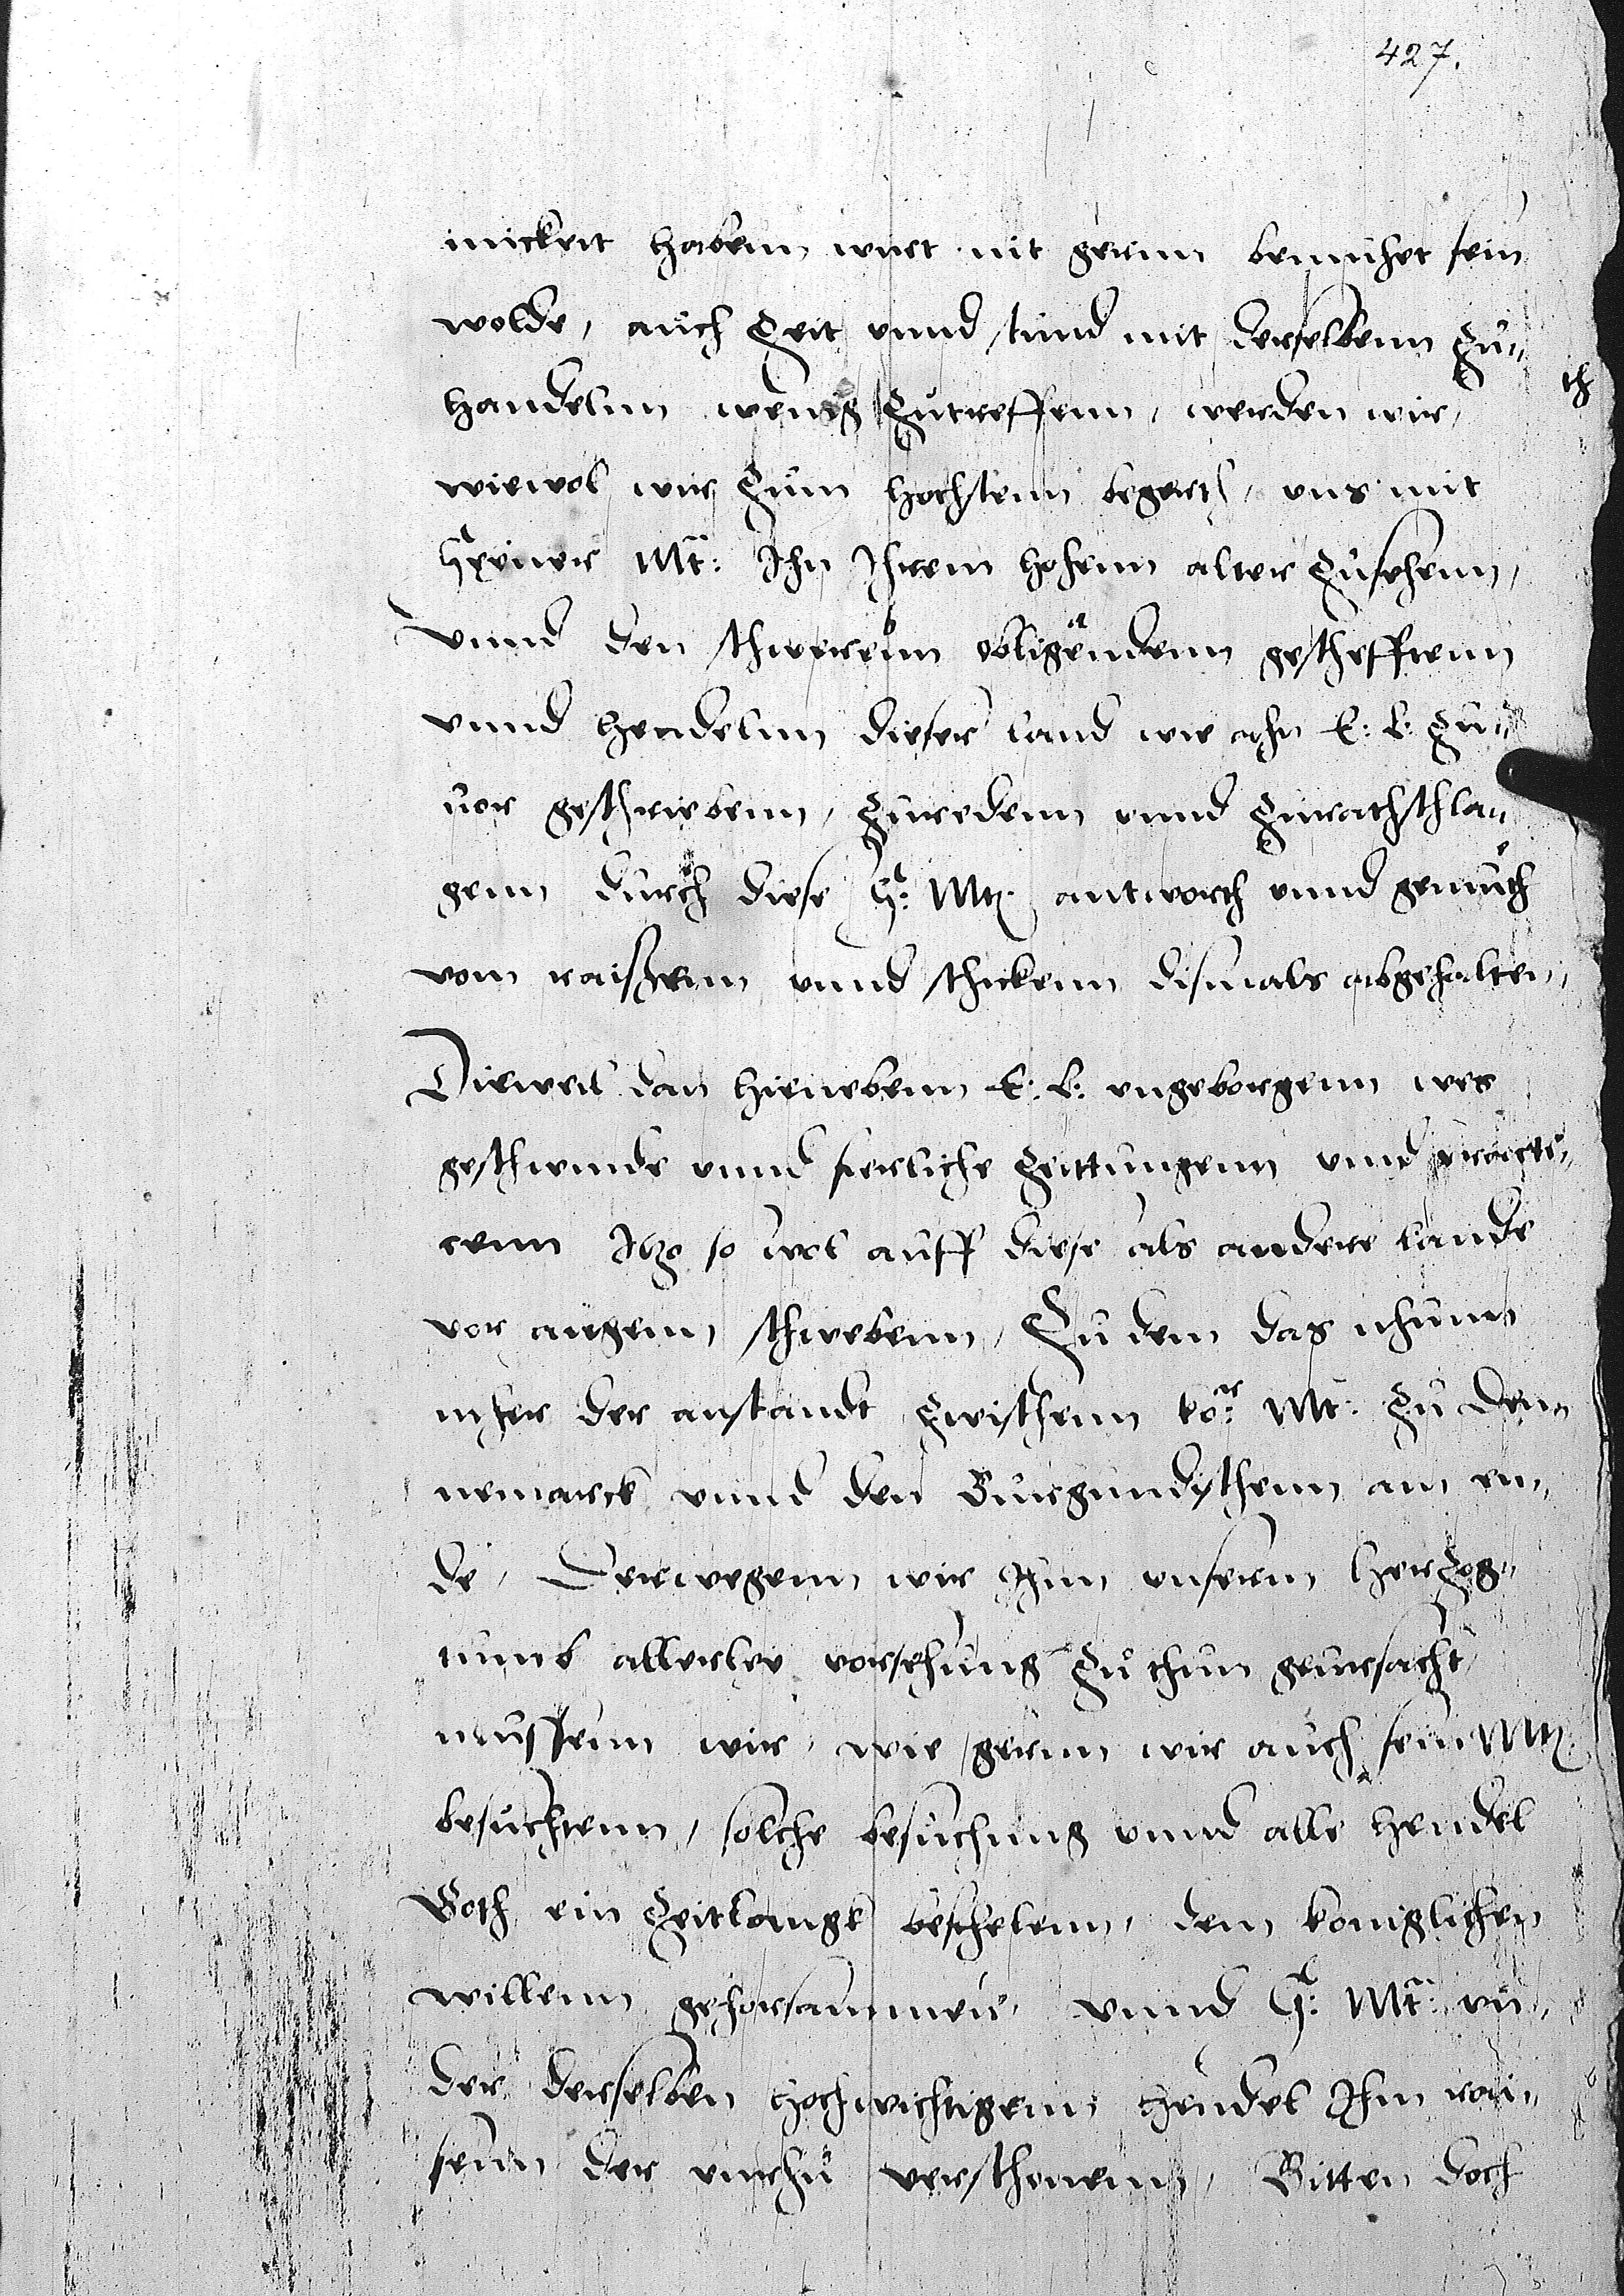 427.
nickeit habenn wirt nit gernn bemuhet sein
wolde, auch Zeit vnnd stund mit derselbenn zu„
handelnn wenig zutreffenn, werden wir,
wiewol wir zum hochstenn begertt, vns mit
Mt: Ihn Ihrem hohenn alter zusehenn,
Vnnd den schwerenn obligendenn gescheffтenn
vnnd hendelnn dieser land wie ahn E: L: zu„
uor geschriebenn, zuredenn vnnd zurathschla„
genn durch diese Mt: antworth vnnd gemuth
vom raißenn vnnd schickenn dismals abgehalten,
Dieweil dan hienebenn E: L: vngeborgenn wes
geschwinde vnnd ferliche Zeittungenn vnnd practi„
cenn Itzo so wol auff diese als andere lande
vor augenn schwebenn, Zu dem das nhunn
mher der anstandt zwischenn ko: Mt: zu Den„
nemarck vnnd den Burgundischenn am en„
de, Derwegenn wir Inn vnserm hertzog„
tumb allerley vorsehung zu thun geursacht,
mussenn wir, wie gernn wir auch sein Mt:
besuchtenn, solche besuchung vnnd alle hendel
Goth ein Zeitlangk beuhelenn, dem koniglichen
willenn gehorsammen, vnnd Mt: vn„
der derselben hochwichtigenn hendel Ihm rai„
senn der vnrhu verschonenn, Bitten doch